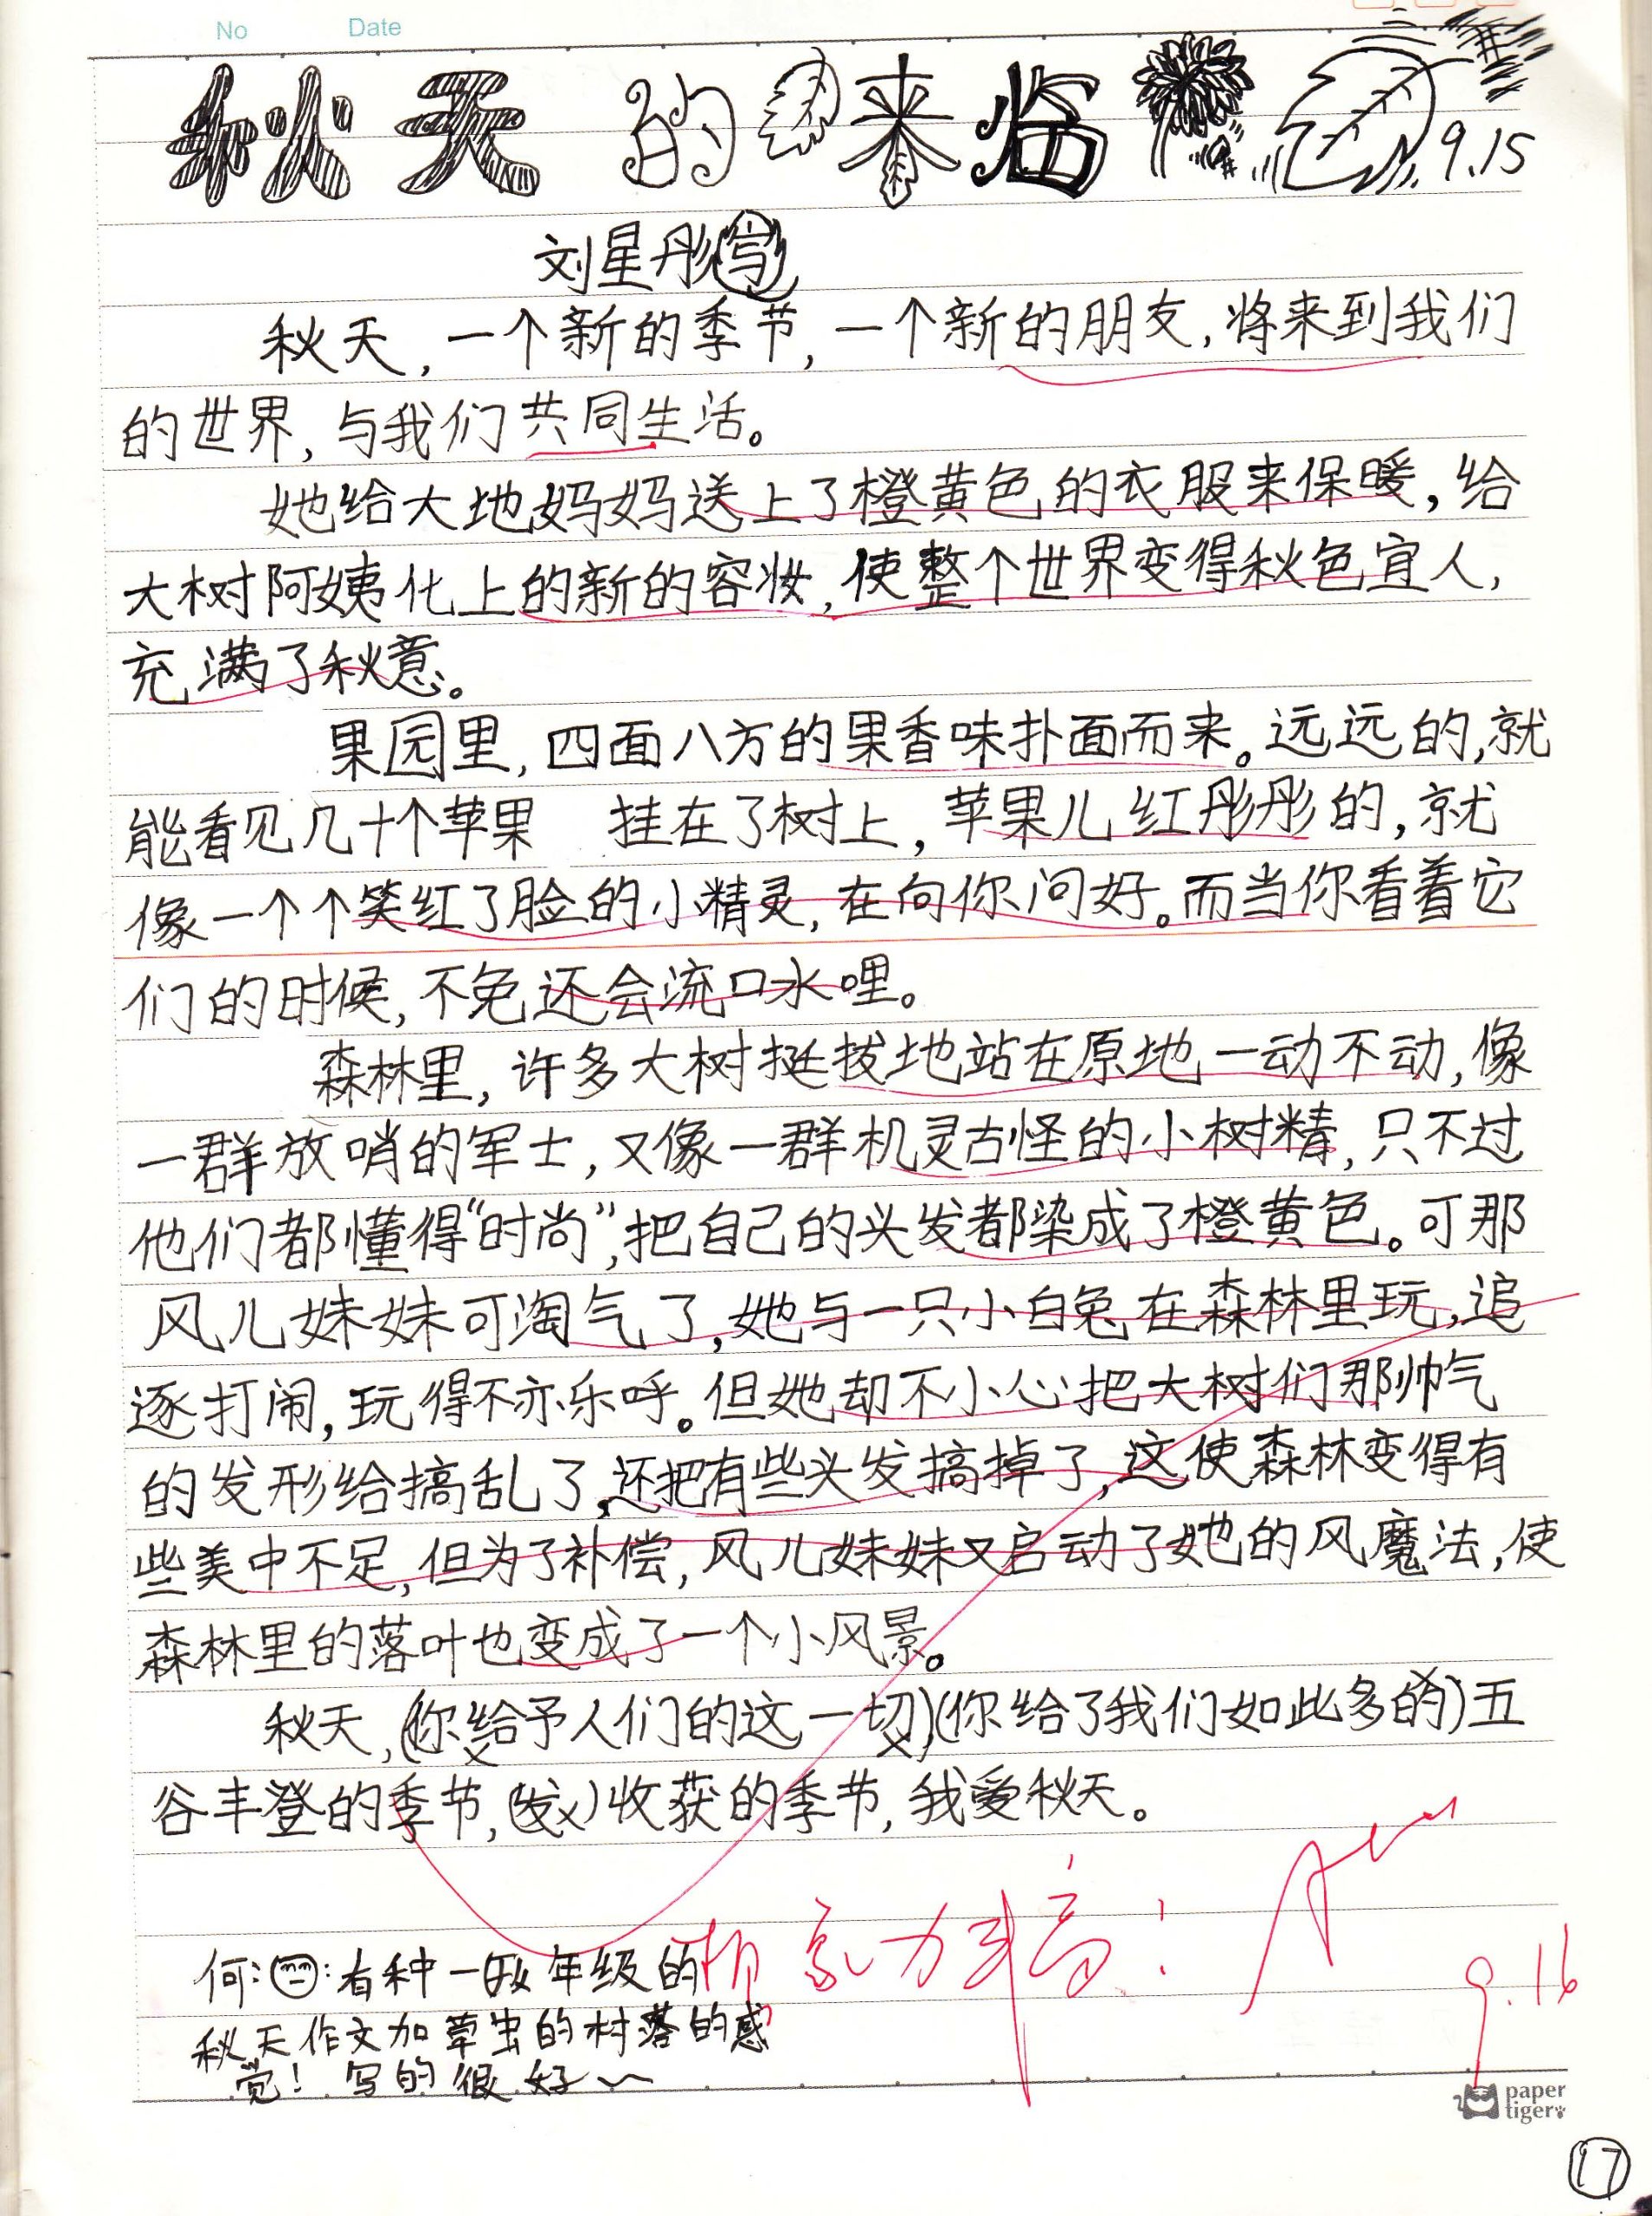 No Date
秋天的来临 9.15
刘星彤写
秋天，一个新的季节，一个新的朋友，将来到我们
的世界，与我们共同生活。
她给大地妈妈送上了橙黄色的衣服来保暖，给
大树阿姨化上的新的容妆，使整个世界变得秋色宜人，
充满了秋意。
果园里，四面八方的果香味扑面而来。远远的，就
能看见几十个苹果 挂在了树上，苹果儿红彤彤的，就
像一个个笑红了脸的小精灵，在向你问好。而当你看着它
们的时候，不免还会流口水哩。
森林里，许多大树挺拔地站在原地一动不动，像
一群放哨的军士，又像一群机灵古怪的小树精，只不过
他们都懂得“时尚”，把自己的头发都染成了橙黄色。可那
风儿妹妹可淘气了，她与一只小白兔在森林里玩，追
逐打闹，玩得不亦乐呼。但她却不小心把大树们那帅气
的发形给搞乱了，还把有些头发搞掉了，这使森林变得有
些美中不足，但为了补偿，风儿妹妹又启动了她的风魔法，使
森林里的落叶也变成了一个小风景。
秋天，(你给予人们的这一切)(你给了我们如此多的)五
谷丰登的季节，(发)收获的季节，我爱秋天。
何：有种一年级的
秋天作文加草虫的村落的感
觉！写的很好~
9.16
paper
tiger
17